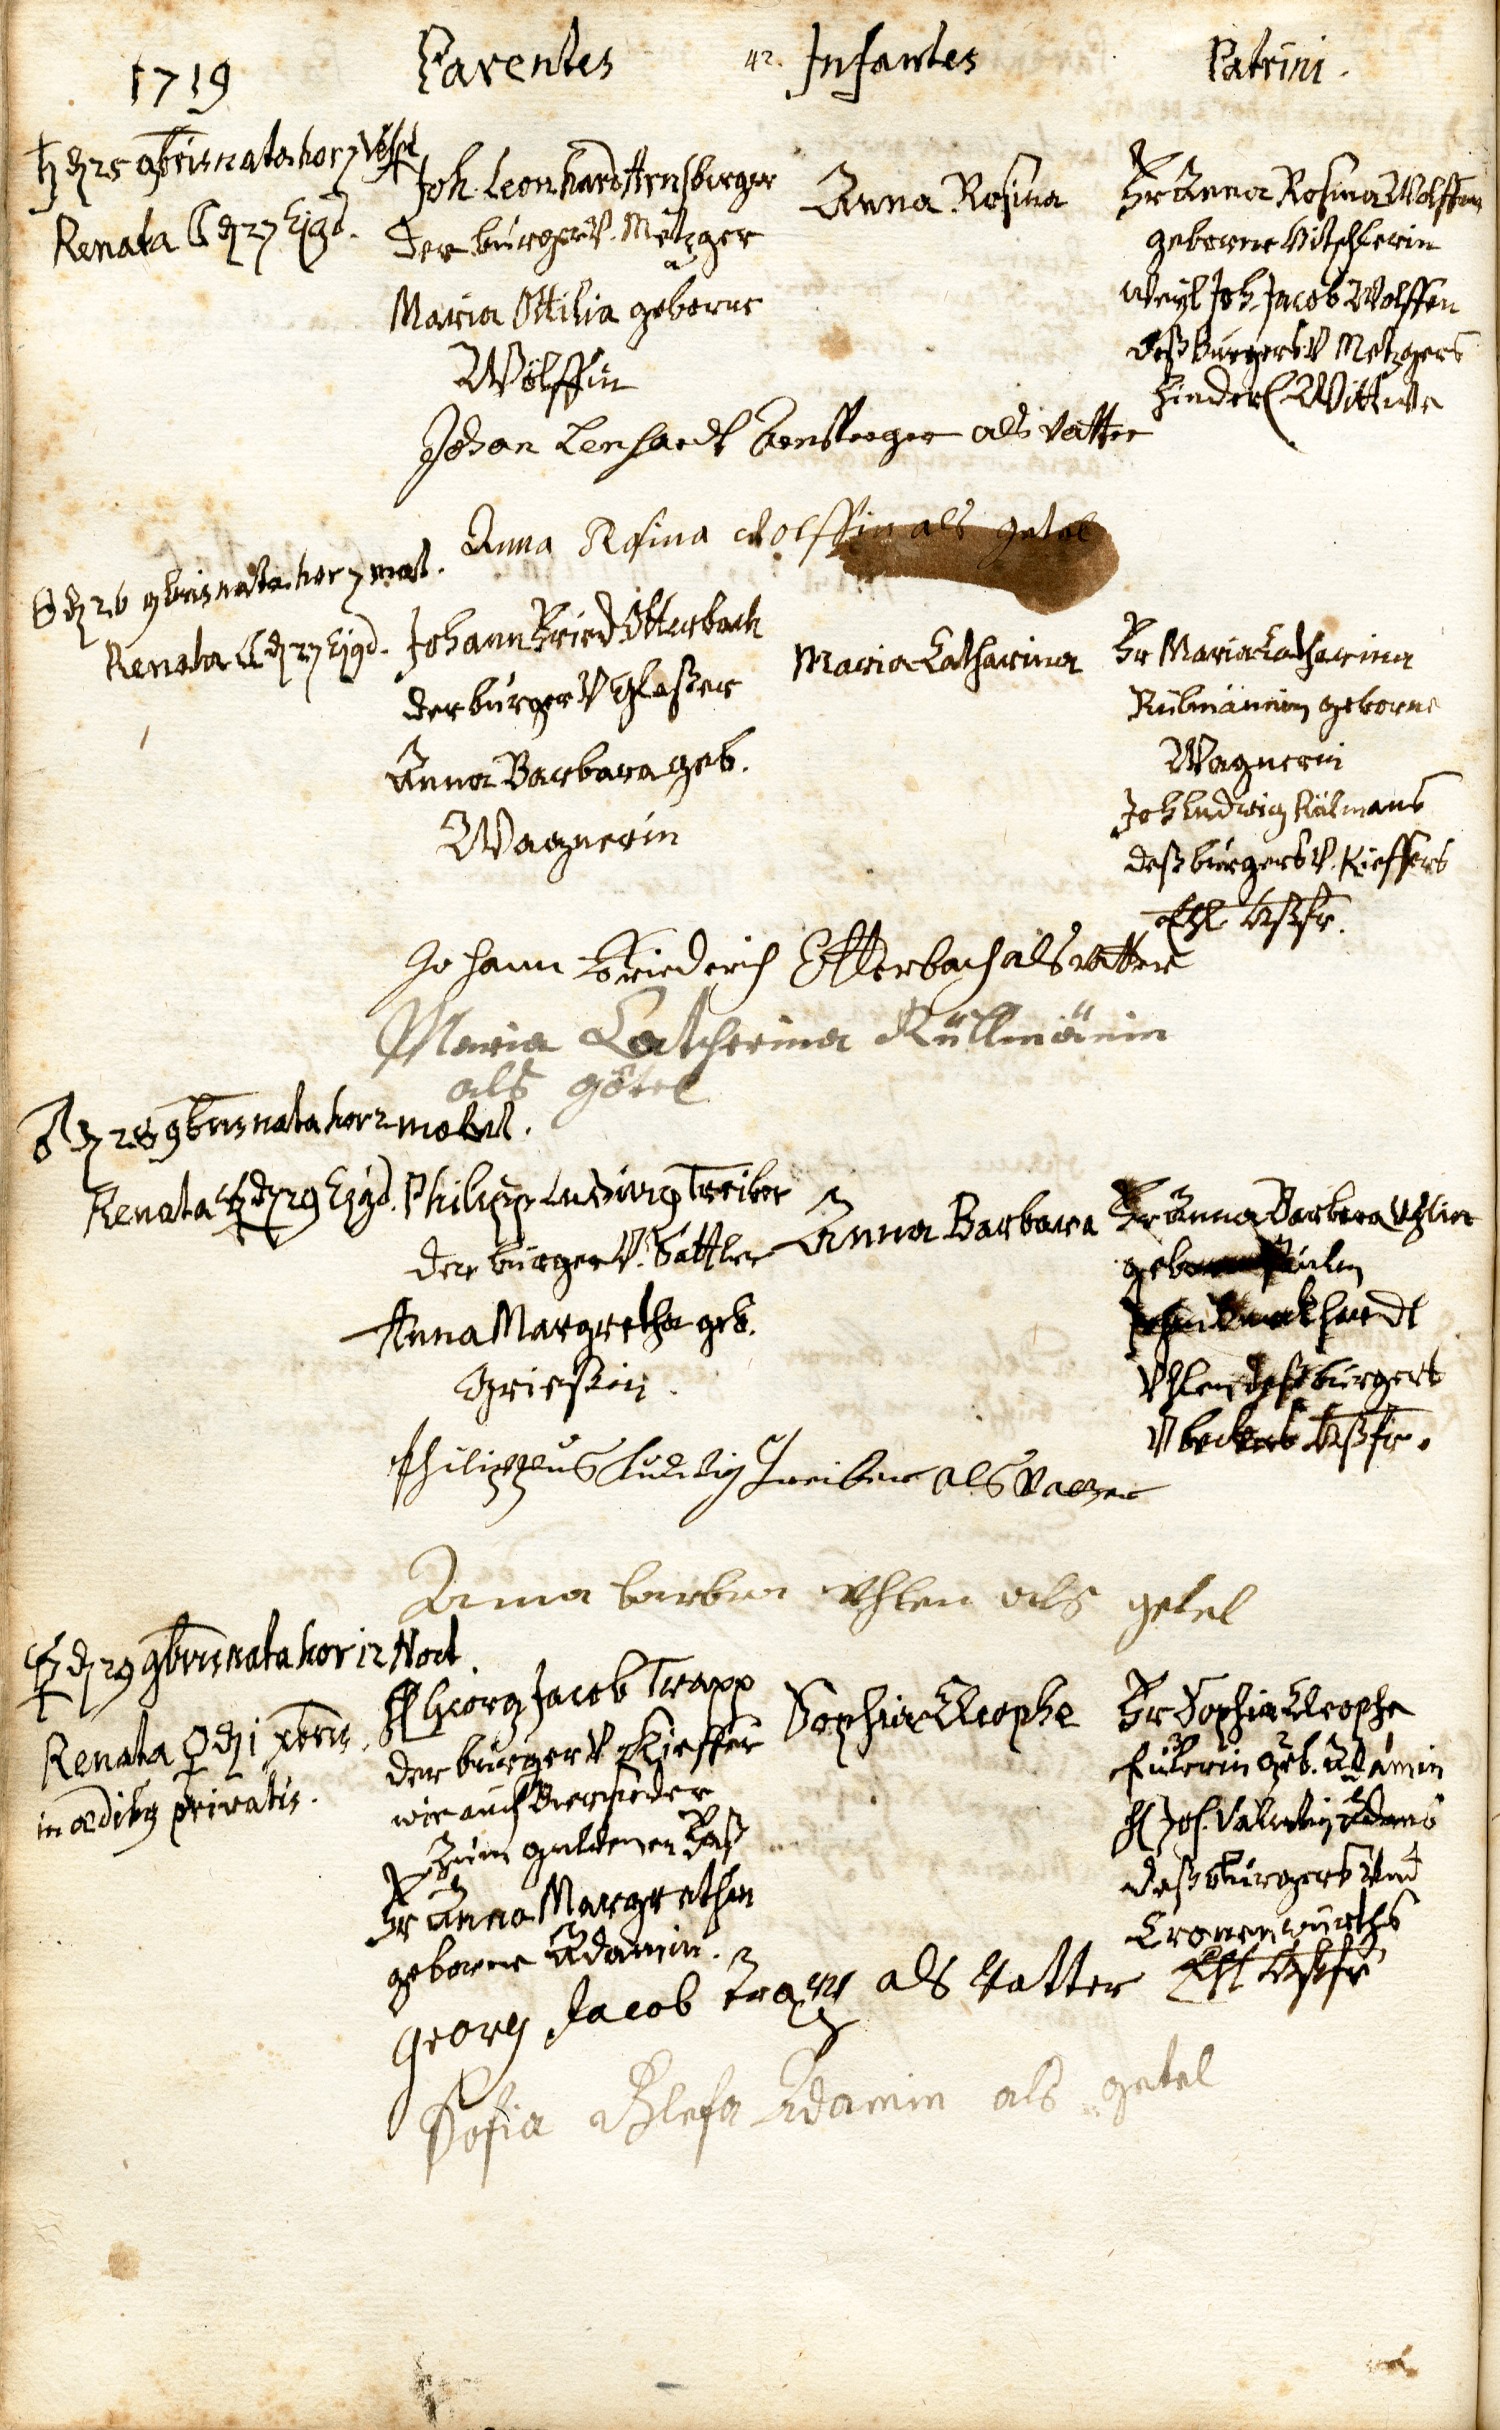 1719
Parentes
42.
Infantes
Patrini.
♄ d 25 9bris nata hor 7 Vesp
Renata ☾ d 27 Ejqd.
Joh. Leonhard Arnsberger
der burger V. Metzger
Maria Ottilia geborne
Wölffin
Anna Rosina
Fr Anna Rosina Wolffen
geborne
weyl Joh. Jacob Wolffen
deß burgers V Metzgers
hinderl Wittwe
Johan Lenhardt als vatter
Anna Rosina Wolffin als getel
☉ d 26 9bris nata hor 7 mat.
Renata ☾ d 27 Ejqd.
Johann Fried Otterbach
der burger V Glaßer
Anna Barbara geb.
Wagnerin
Maria Catharina
Fr Maria Catharina
Rülmännin geborne
Wagnerin
Joh Ludwig Rülmans
deß burgers V. Kieffers
Ehl Haßfr.
Johann Friederich Otterbach als vatter
Maria Catherina Rüllmänin
als götel
♂ d 28 9bris nata hor 2 mat.
Renata ☿ d 29 Ejqd.
Philipp Ludwig Treiber
der burger V. Sattler
Anna Margretha geb.
Grießin.
Anna Barbara
Fr Anna Barbara Uhlin
Uhlen deß burgers
V beckers Haßfr.
Philippus Ludwig Treiber als Vatter
Anna barbra Uhlen als getel
☿ d 29 9bris nata hor 12 Noct.
Renata ♀ d 1 xbris
in ædibg privatis.
H Georg Jacob Trapp
der burger V Kieffer
wie auch Biersieder
Zum guldenen Faß
Fr Anna Margretha
geborne Adamin.
Sophia Cleophe
Fr Sophia Cleophe
geb. Adamin
H Joh. Valentin Adams
deß burgers Und
Cronenwürths
Ehl Haßfr
Georg Jacob Trapp als Vatter
Sofia Klefa Adamin als getel